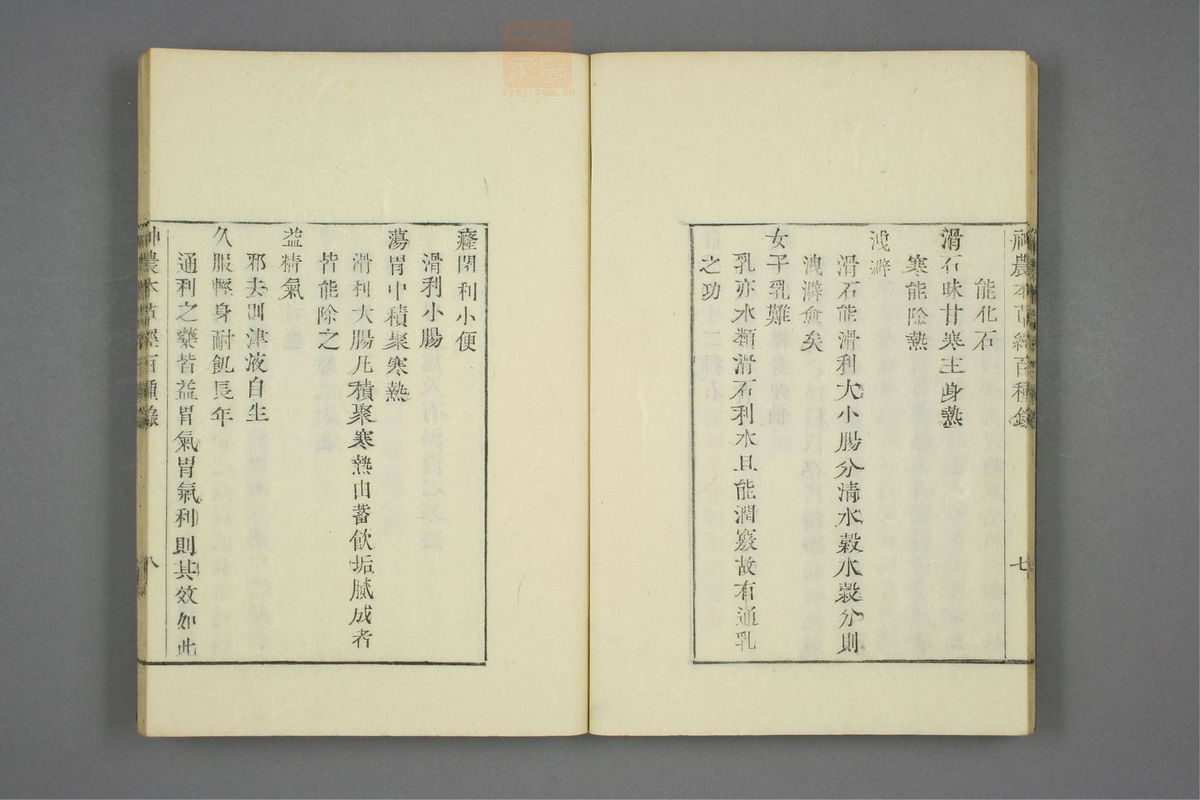 神農本草經百種錄
七
能化石
滑石味甘寒主身熱
寒能除熱
洩澼
滑石能滑利大小腸分清水穀水穀分則
洩澼愈矣
女子乳難
乳亦水類滑石利水且能潤竅故有通乳
之功
癃閉利小便
滑利小腸
蕩胃中積聚寒熱
滑利大腸凡積聚寒熱由蓄飲垢膩成者
皆能除之
益精氣
邪去則津液自生
久服輕身耐飢長年
通利之藥皆益胃氣胃氣利則其效如此
神農本草經百種錄
八
zysj.com.cn